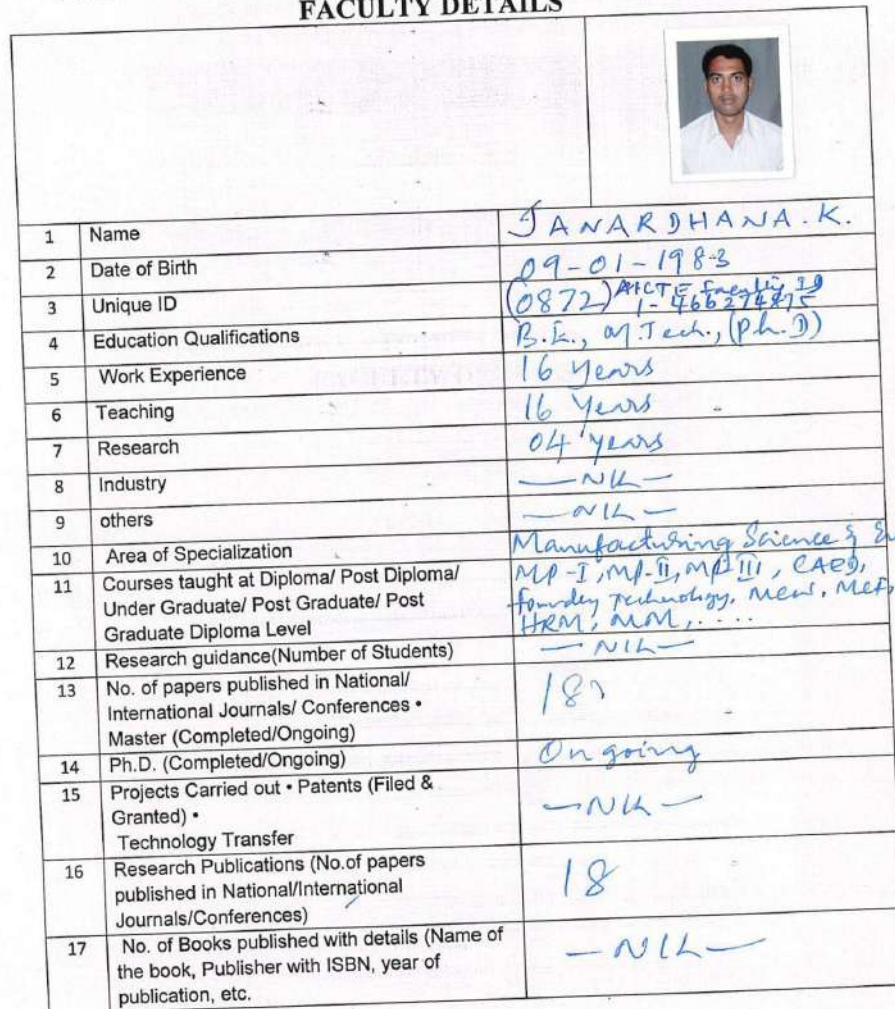 FACULTY DETAILS
1 Name JANARDHANA.K.
2 Date of Birth 09-01-1983
3 Unique ID (0872) AICTE Faculty ID
1-466274875
4 Education Qualifications B.E., M.Tech., (Ph.D)
5 Work Experience 16 Years
6 Teaching 16 Years
7 Research 04 years
8 Industry —NIL—
9 others —NIL—
10 Area of Specialization Manufacturing Science &
11 Courses taught at Diploma/ Post Diploma/ MP-I, MP-II, MP-III, CAED,
Under Graduate/ Post Graduate/ Post Foundry Technology,
Graduate Diploma Level HRM, MM, ....
12 Research guidance(Number of Students) —NIL—
13 No. of papers published in National/
International Journals/ Conferences • 18
Master (Completed/Ongoing)
14 Ph.D. (Completed/Ongoing) Ongoing
15 Projects Carried out • Patents (Filed &
Granted) • —NIL—
Technology Transfer
16 Research Publications (No.of papers
published in National/International 18
Journals/Conferences)
17 No. of Books published with details (Name of
the book, Publisher with ISBN, year of —NIL—
publication, etc.